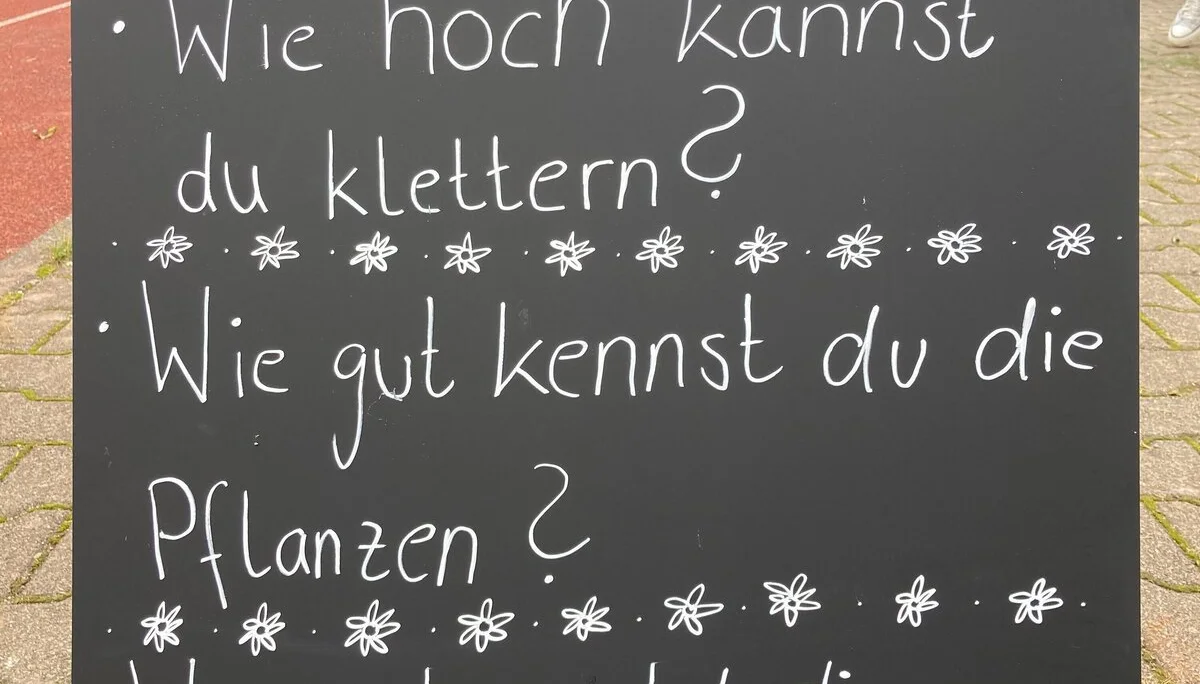 • Wie hoch kannst
du klettern?
• Wie gut kennst du die
Pflanzen?